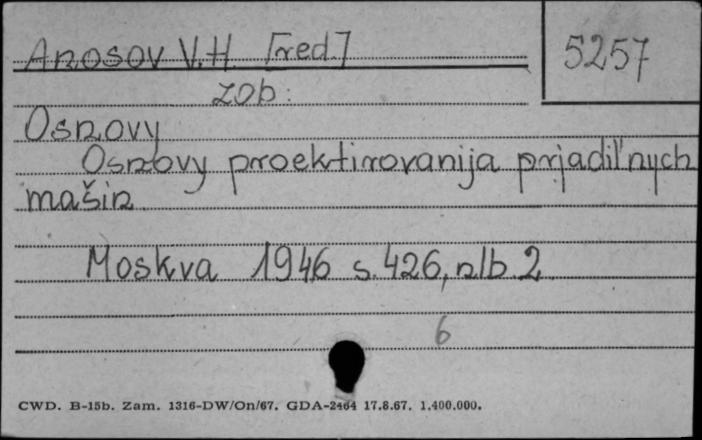 Anosov V.H. [red.]
5257
zob:
Osnovy
Osnovy proektirovanija prjadil'nych
mašin
Moskva 1946 s. 426, nlb. 2
6
CWD. B-15b. Zam. 1316-DW/On/67. GDA-2464 17.8.67. 1.400.000.